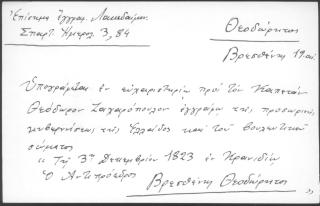 Ἐπίσημα ἔγγραφ. Λακεδαίμ.
Σπαρτ. Ἡμερολ. 3, 84
Θεοδώρητος
Βρεσθένης 19 αἰ.
Ὑπογράφεται ἐν εὐχαριστηρίῳ πρὸς τὸν Καπετὰν
Θεόδωρον Ζαχαρόπουλον ἐγγράφῳ τῆς προσωριν.
κυβερνήσεως τῆς Ἑλλάδος καὶ τοῦ βουλευτικοῦ
σώματος
"Τῇ 3ῃ Δεκεμβρίου 1823 ἐν Κρανιδίῳ
Ὁ Ἀντιπρόεδρος
Βρεσθένης Θεοδώρητος"